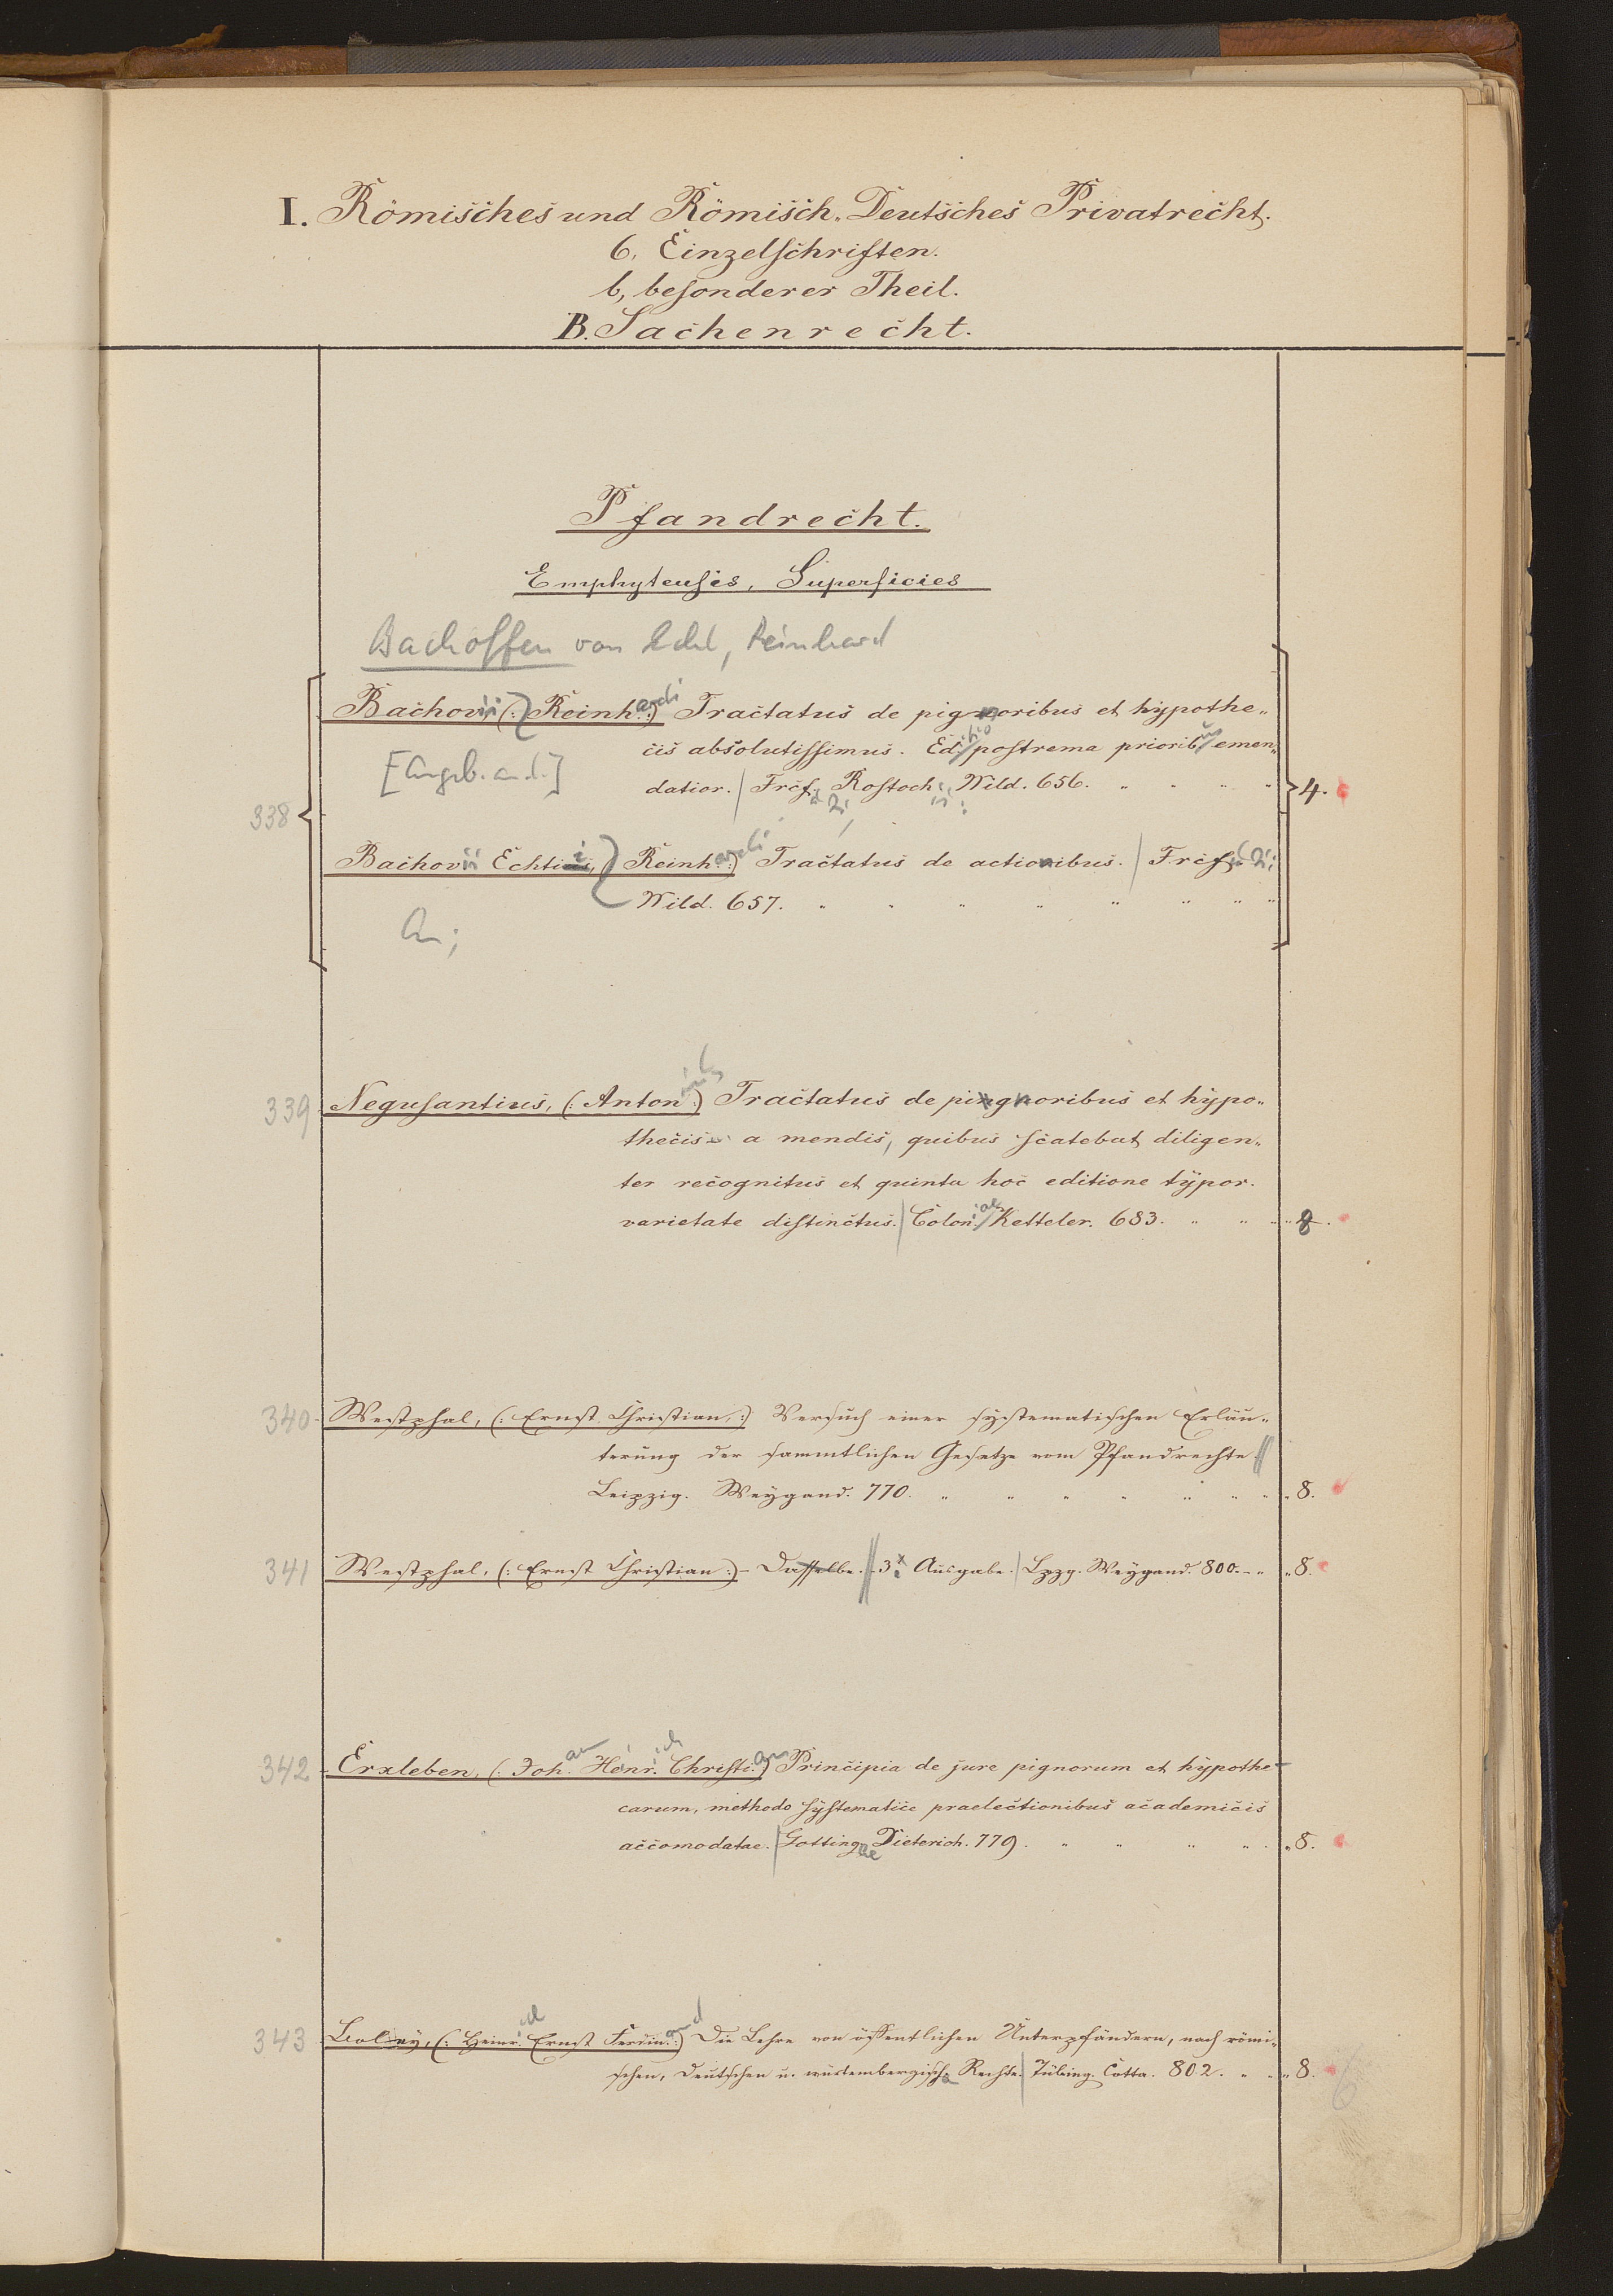 I. Römisches und Römisch-Deutsches Privatrecht.
6, Einzelschriften.
b, besonderer Theil.
B. Sachenrecht.
Pfandrecht.
Emphyteusis, Superficies
Bachoffen von Echt, Reinhard
Bachovii (: Reinhardi :) Tractatus de pignoribus et hypothe-
cis absolutissimus. Editio postrema priorib us emen-
[Angeb. an d.]
datior. Frcf. Rostoch., Wild. 656. 4.
338
Bachovii Echtii, Reinhardi :) Tractatus de actionibus. Frcf.
Wild. 657.
An;
339 Negusantius, (: Anton ius :) Tractatus de pignoribus et hypo-
thecis a mendis, quibus scatebat diligen-
ter recognitus et quinta hoc editione typor.
varietate distinctus. Colon. Ketteler. 683. 8.
340 Westphal, (: Ernst Christian, :) Versuch einer systematischen Erläu-
terung der sammtlichen Gesetze vom Pfandrechte
Leipzig. Weygand. 770. 8.
341 Westphal, (: Ernst Christian :) - Dasselbe. - 3. Ausgabe. Lpzg. Weygand. 800. 8.
342 Erxleben, (: Joh an Heinrich Christian :) Principia de jure pignorum et hypothe-
carum, methodo systematice praelectionibus academicis
accomodatae. Gottingae Dieterich. 779. 8.
343 (: Heinrich Ernst Ferdinand :) Die Lehre von öffentlichen Unterpfändern, nach römi-
schen, Deutschen u. würtembergisch Rechte. Tübing. Cotta. 802. 8.
6